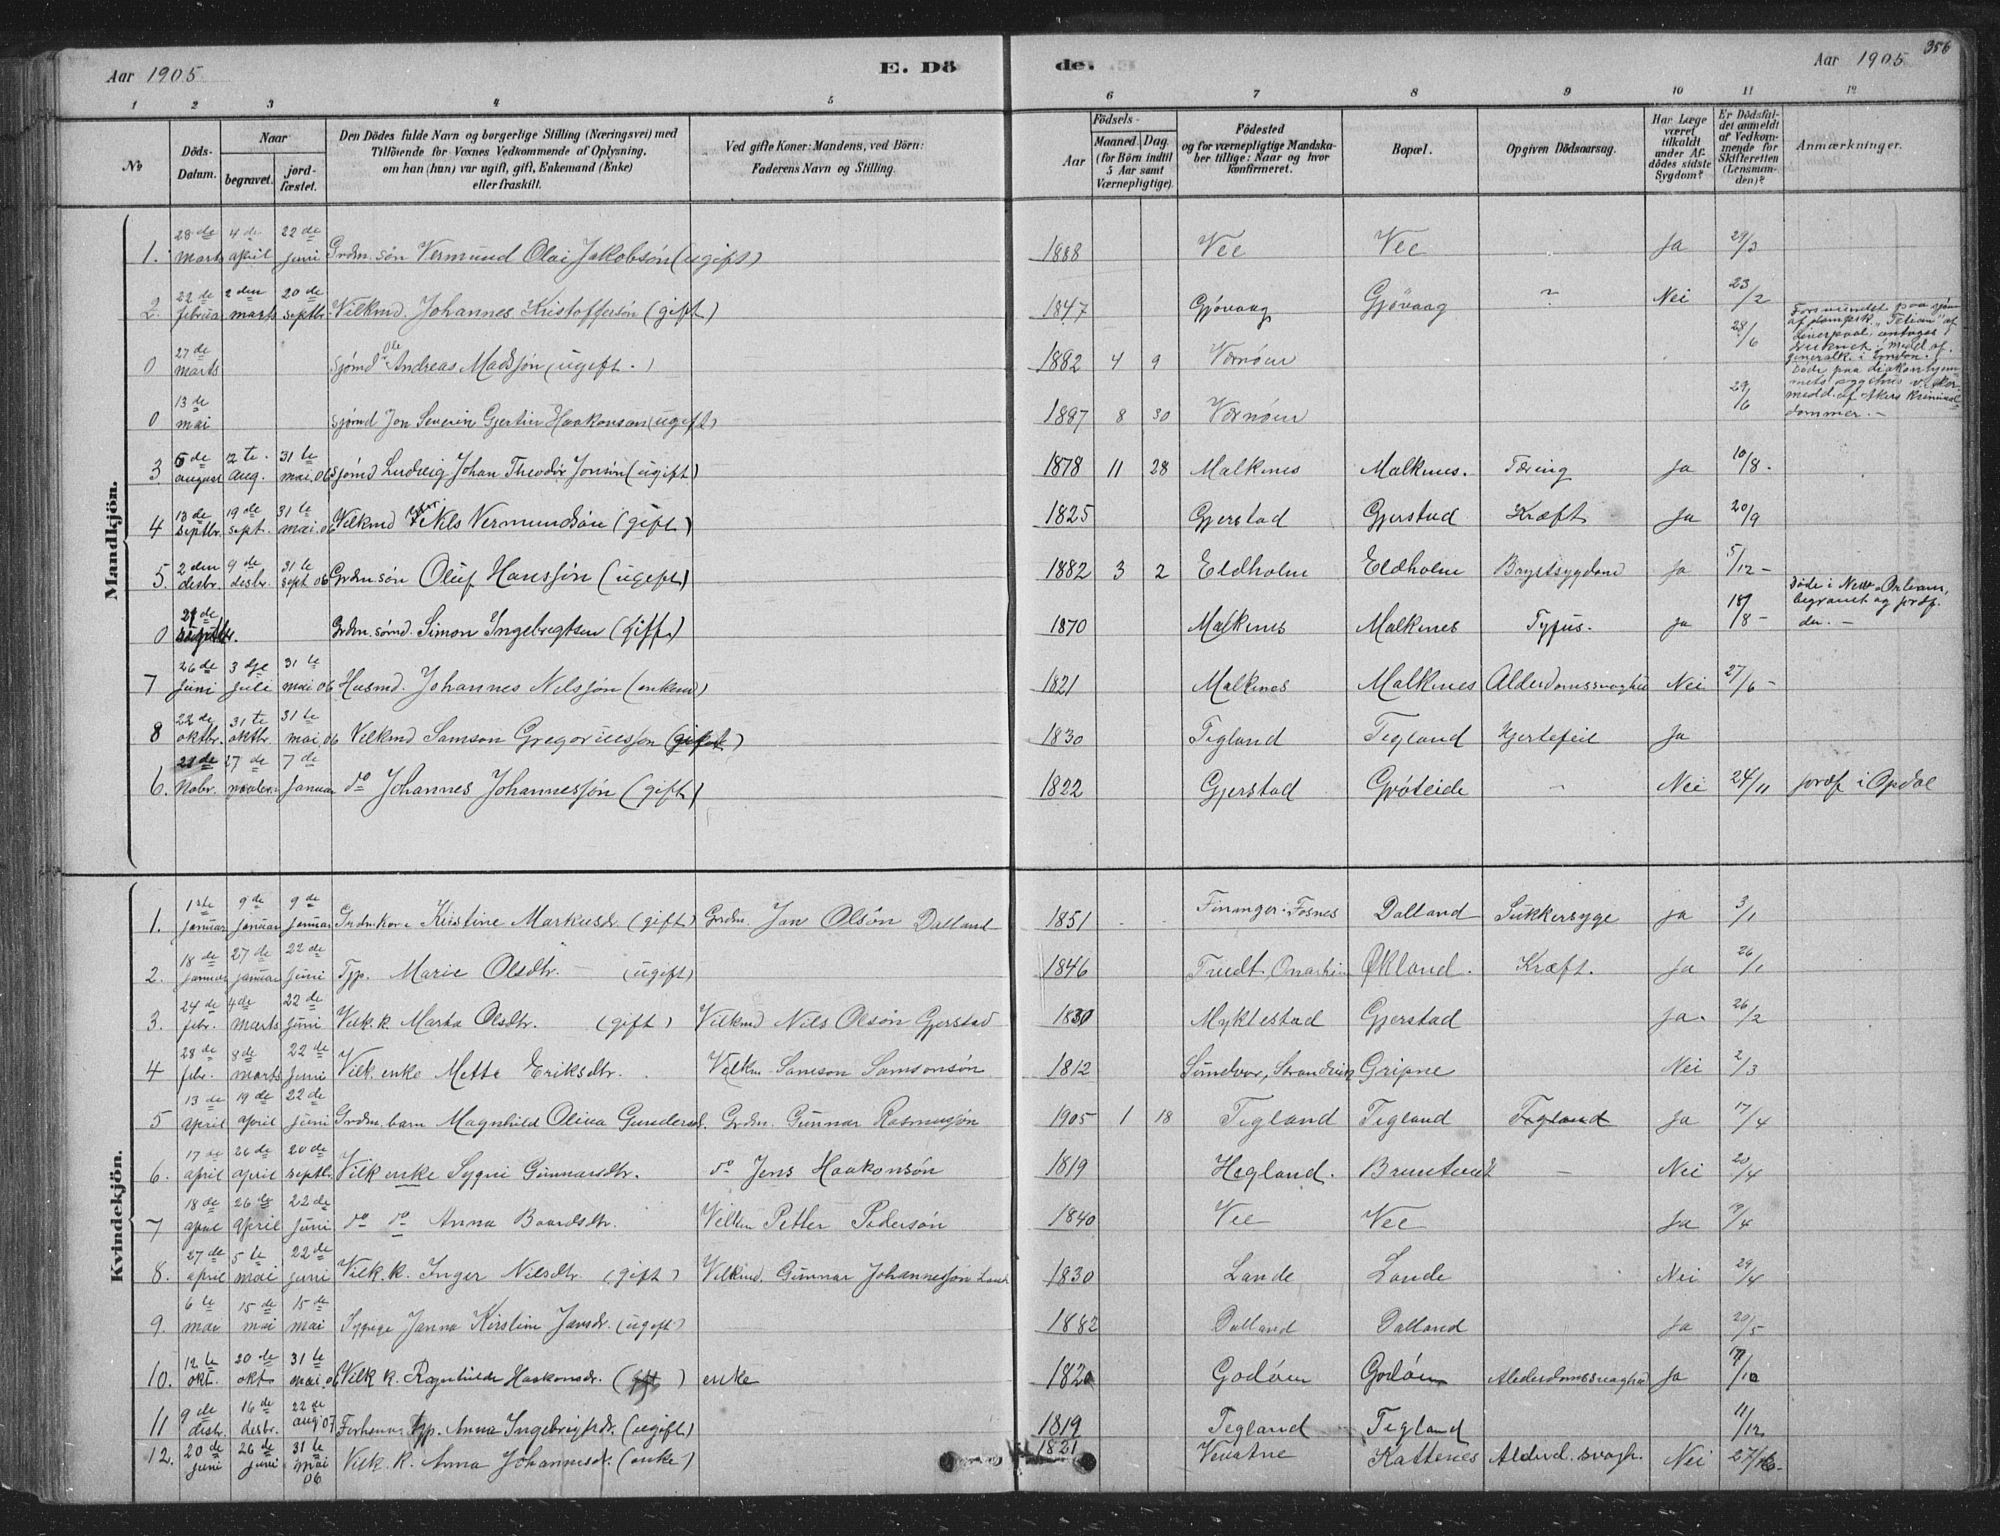 356
Aar 1905 E. Dö de. Aar 1905
1 2 3 4 5 6 7 8 9 10 11 12
No
Döds-Datum.
Naar
begravet.
jord-fæstet.
Den Dödes fulde Navn og borgerlige Stilling (Næringsvei) med
Tilföiende for Voxnes Vedkommende af Oplysning,
om han (hun) var ugift, gift, Enkemand (Enke)
eller fraskilt.
Ved gifte Koner: Mandens, ved Börn:
Faderens Navn og Stilling.
Födsels-
Aar
Maaned. Dag.
(for Börn indtil
5 Aar samt
Værnepligtige).
Födested
og for værnepligtige Mandska-
ber tillige: Naar og hvor
konfirmeret.
Bopæl.
Opgiven Dödsaarsag.
Har Læge
været
tilkaldt
under Af-
dödes sidste
Sygdom?
Er Dödsfal-
det anmeldt
af Vedkom-
mende for
Skifteretten
(Lensman-
den)?
Anmærkninger.
Mandkjön.
1. 28de marts 4de april 22de juni Grdm. søn Vermund Olai Jakobsøn (ugift) 1888 Vee Vee Ja 29/3
2. 22de februar 2den marts 20de septbr. Vilkmd. Johannes Kristoffersøn (gift) 1847 Gjøvaag Gjøvaag ? Nei 23/2
0 27de marts Sjømd Ole Andreas Madssøn (ugift.) 1882 4 9 Vernøen 28/6 Forsvundet paa
0 13de mai Sjømd Jon Severin Gjertin Haakonson (ugift) 1887 8 30 Vernøen 29/6 Døde paa
3 5de august 12te aug. 31te mai. 06 Sjømd Ludvig Johan Theodor Jonsøn (ugift) 1878 11 28 Malkenes Malknes. Tæring Ja 10/8.
4 13de septbr. 19de sept. 31te mai. 06 Vilkmd Nils Vermundsøn (gift) 1825 Gjerstad Gjerstad Kræft Ja 20/9
5 2den desbr. 9de desbr. 31te sept 06 Grdm søn Oluf Hanssøn (ugift) 1882 3 2 Eldholm Eldholm Brystsygdom Ja 5/12 -
0 Grdm. sømd. Simon Ingebregtsen (gift) 1870 Malkenes Malkenes Tyfus. Ja 18/8 - Døde i New Orleans, begravet og jordf. der. -
7 26de juni 3dje juli 31te mai 06 Husmd. Johannes Nilssøn (enkmd) 1821 Malkenes Malkenes Alderdomssvaghed Nei 27/6 -
8 22de oktbr. 31te oktbr. 31te mai, 06 Velkmd Samson Gregoriussøn (gift) 1830 Tegland Tegland Hjertefeil Ja
6. 21de Nobr. 27de novbr. 7de Januar do Johannes Johannessøn (gift) 1822 Gjerstad Grøteide - Nei 24/11 jordf i Opdal
Kvindekjön.
1. 1ste januar 9de januar 9de januar Grdm kone Kirstine Markusdr. (gift) Grdm Jan Olsøn Dalland 1851 Finanger. Fosnes Dalland Sukkersyge ja 3/1
2. 18de januar 27de januar 22de juni Tjp. Marie Olsdtr. - (ugift) 1846 Økland. Kræft. Ja 26/1
3. 24de febr. 4de marts 22de juni Vilk. k. Marta Olsdtr. (gift) Vilkmd Nils Olsøn Gjerstad 1830 Myklestad Gjerstad Ja. 26/2
4 28de febr. 8de marts 22de juni Vilk. enke Mette Eriksdtr. Velkm Samson Samsonsøn 1812 Sundvor, Strandvik Gripne Nei 2/3
5 13de april 19de april 22de juni Grdm. barn Magnhild Olina Gundersd. Grdm. Gunnar Rasmussøn 1905 1 18 Tegland Tegland Tegland Ja 17/4
6. 17de april 26de april 20de septbr. Vilk enke Sygni Gunnarsdtr. do Jens Haakonsøn 1819 Hegland. - Nei 20/4
7 18de april 26de april 22de juni do do Anna Baardsdtr. Velkm Petter Pedersøn 1840 Vee Vee Ja
8. 27de april 5te mai 22de juni Vilk. k. Inger Nilsdtr (gift) Vilkmd. Gunnar Johannessøn Lande 1830 Lande Lande Nei 29/4
9. 6te mai 15de mai 15de mai Sypige Janna Kirstine Jansdr. (ugift) 1882 Dalland Dalland Ja 20/5
10. 12te okt. 20de okt 31te mai 06 Vilk k. Ragnhilde Haakonsdr. (gift) enke 1820 Godøen Godøen Alderdomssvaghed Ja
11 9de desbr. 16de desbr. 22de aug 07 Forhenv. tjp. Anna Ingebrigtsdr. (ugift) 1819 Tegland Tegland 11/12
12. 20de juni 26de juni 31te mai 06 Vilk. k. Anna Johannesdr. (enke) 1821 Kattenes Alderd. svagh. Nei